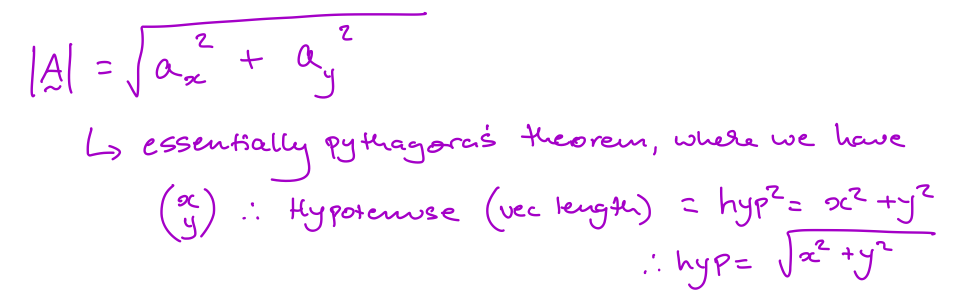 |A̰| = √(aₓ² + a_y²)
↳ essentially pythagora's theorem, where we have
(x y) ∴ Hypotenuse (vec length) = hyp² = x² + y²
∴ hyp = √(x² + y²)